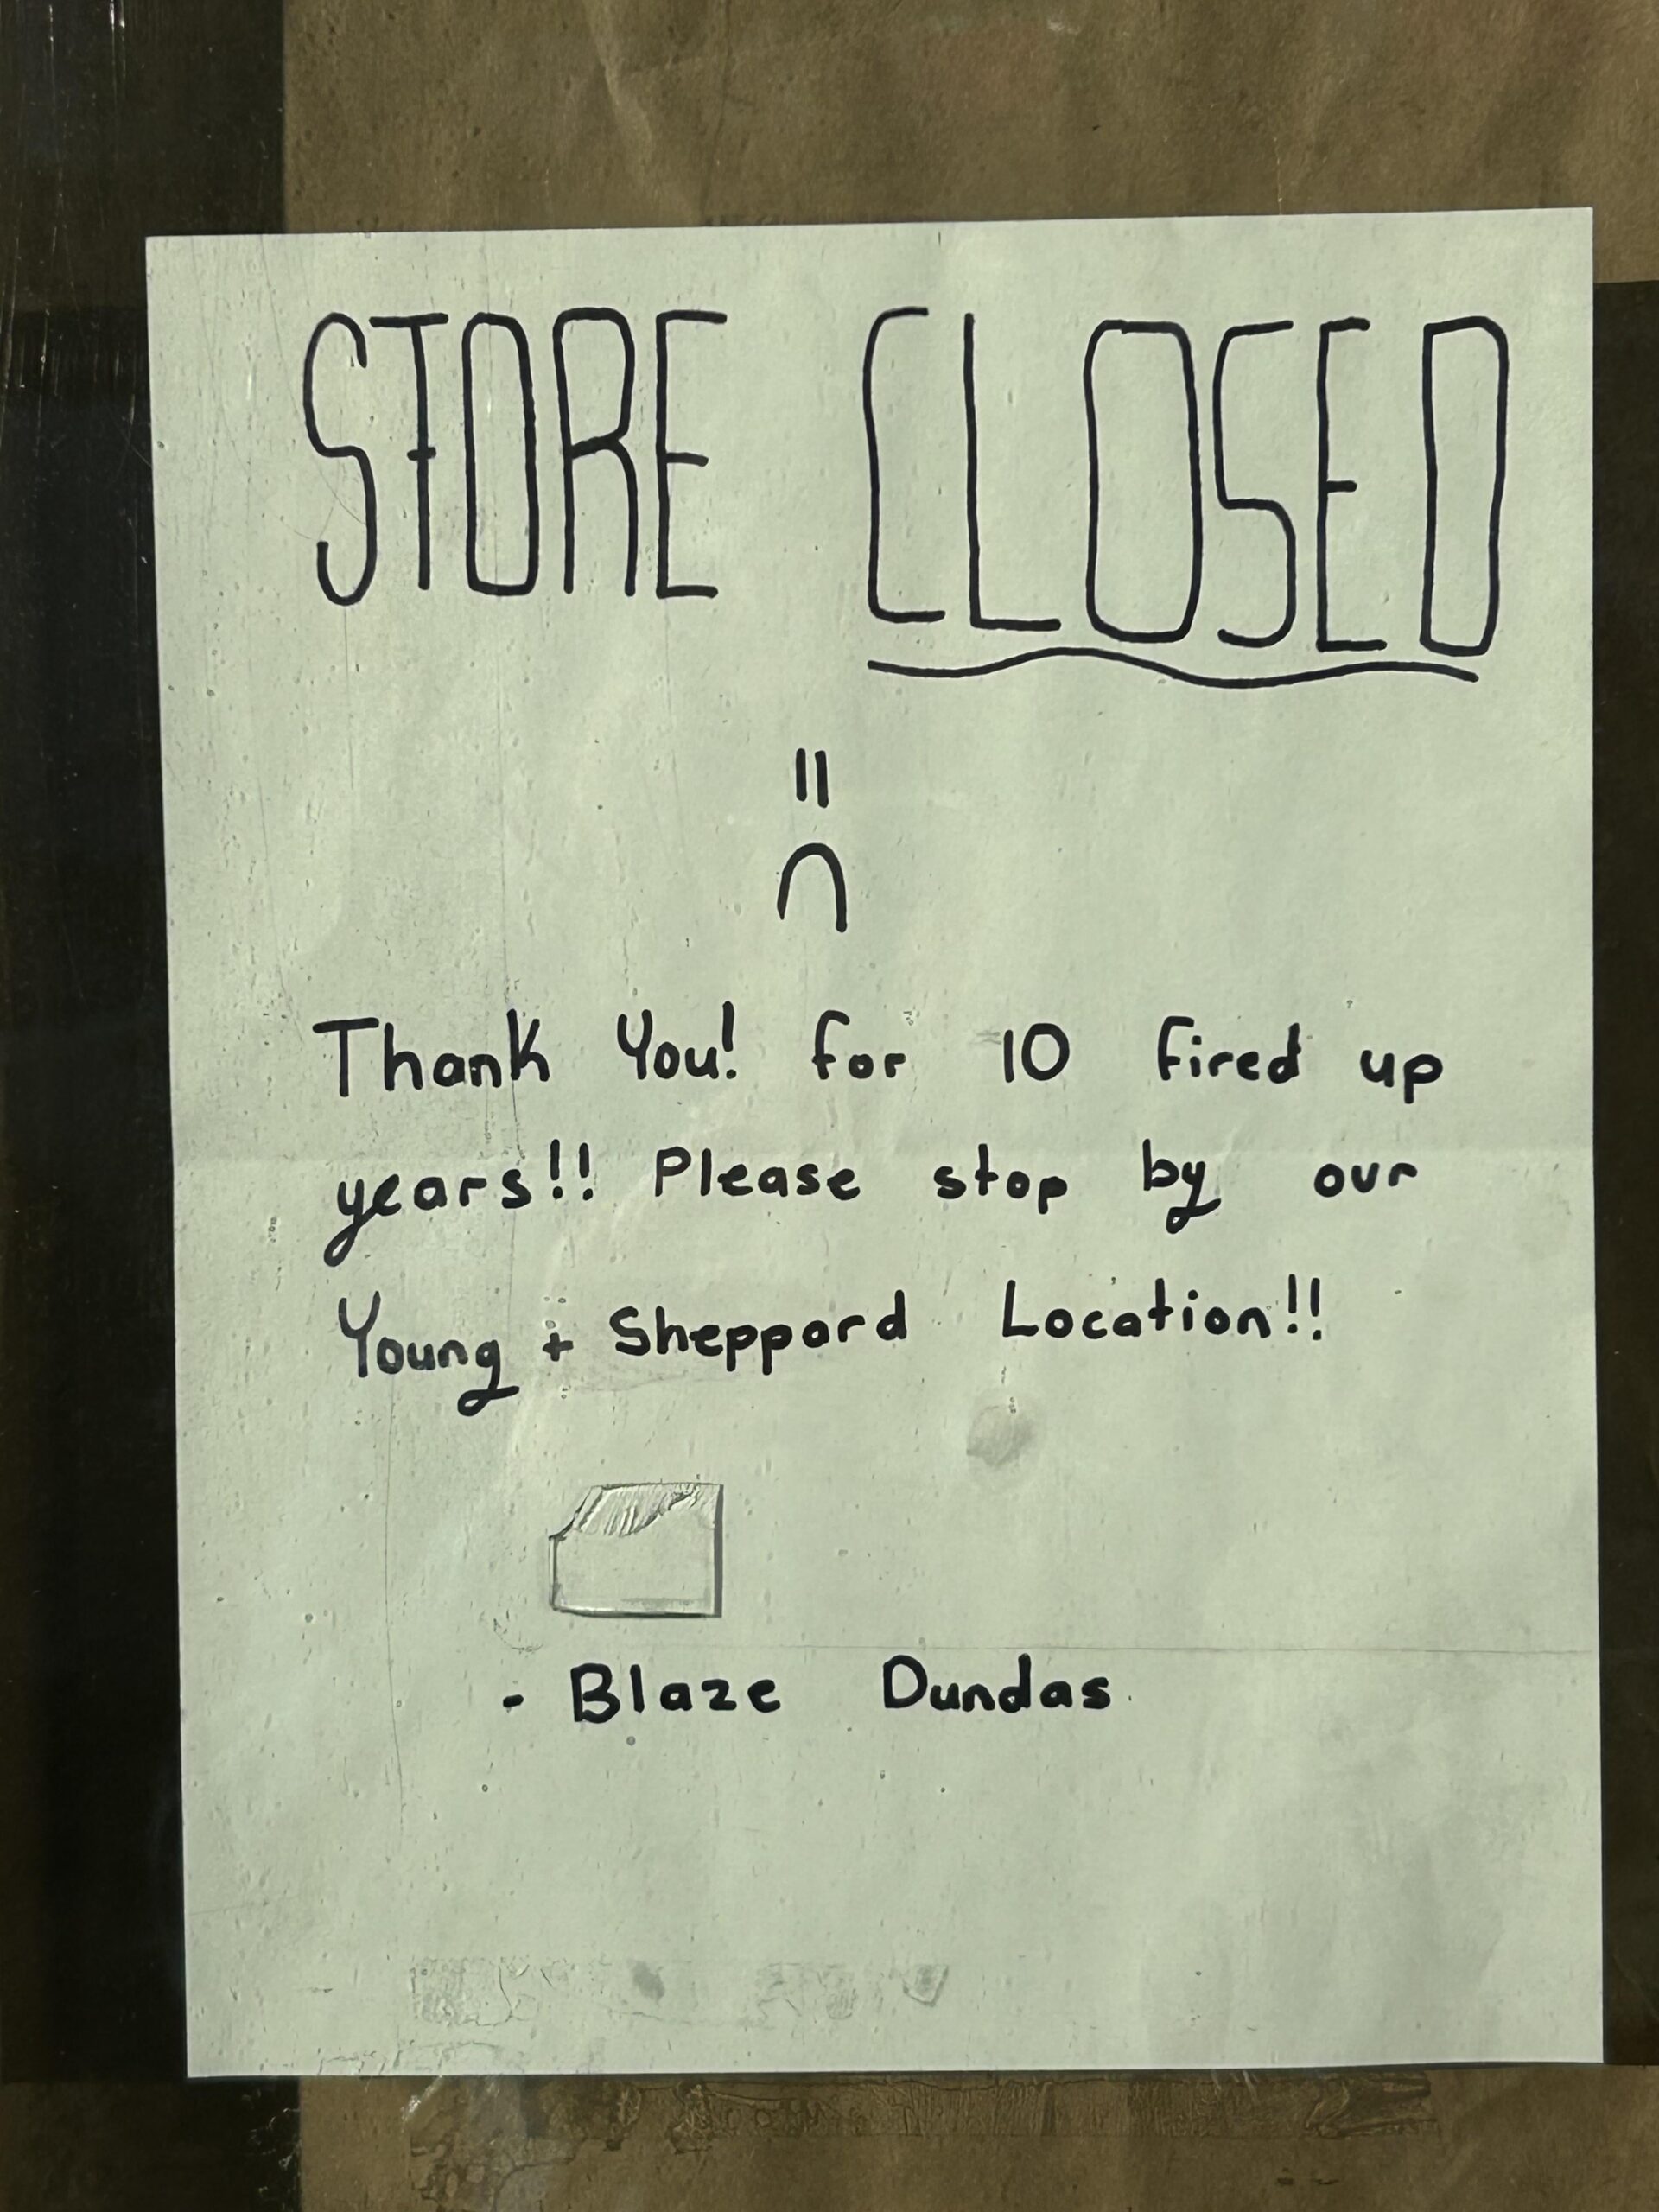 STORE CLOSED
Thank You! for 10 fired up
years!! Please stop by our
Young + Sheppard Location!!
- Blaze Dundas